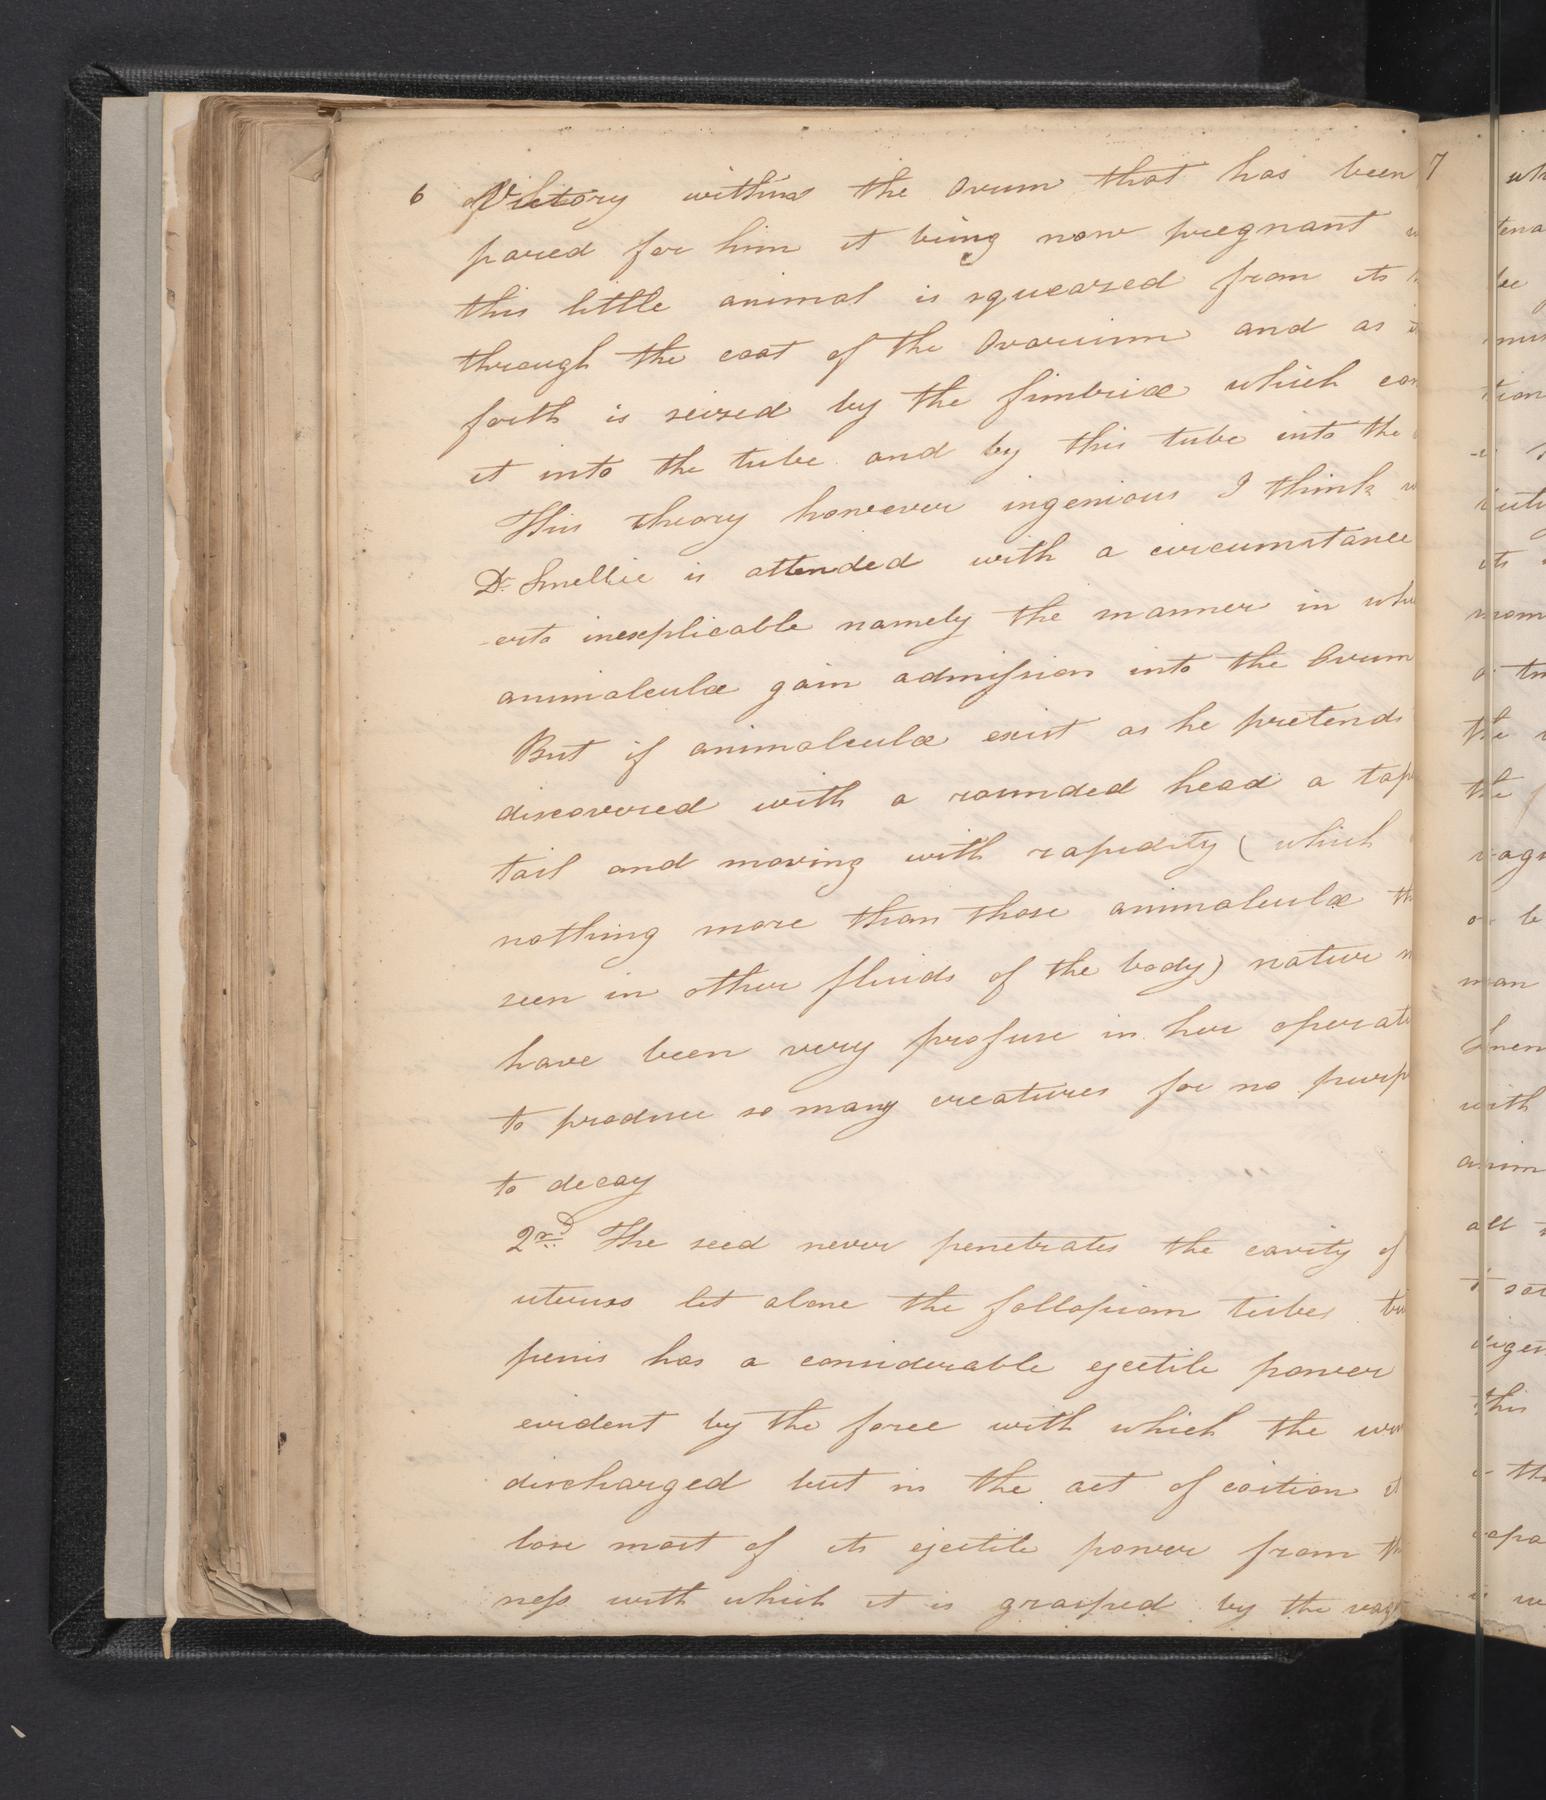 6 of Victory within the Ovum that has been
pared for him it being now pregnant
this little animal is squeazed from its
through the coat of the Ovarium and as
forth is seized by the fimbriæ which con
it into the tube and by this tube into the
This theory however ingenious I think
Dr. Smellie is attended with a circumstance
-erto inexplicable namely the manner in whi
animalculæ gain admission into the Ovum
But if animalculæ exist as he pretends
discovered with a rounded head a tap
tail and moving with rapidity ( which
nothing more than those animalculæ th
seen in other fluids of the body) nature
have been very profuse in her operati
to produce so many creatures for no purp
to decay
2nd. The seed never penetrates the cavity of
uterus let alone the fallopian tubes
penis has a considerable ejectile power
evident by the force with which the uri
discharged but in the act of coition it
lose most of its ejectile power from th
ness with which it is grasped by the vag
7
tena
be
tion
its
mom
the
the
man
with
anim
all
this